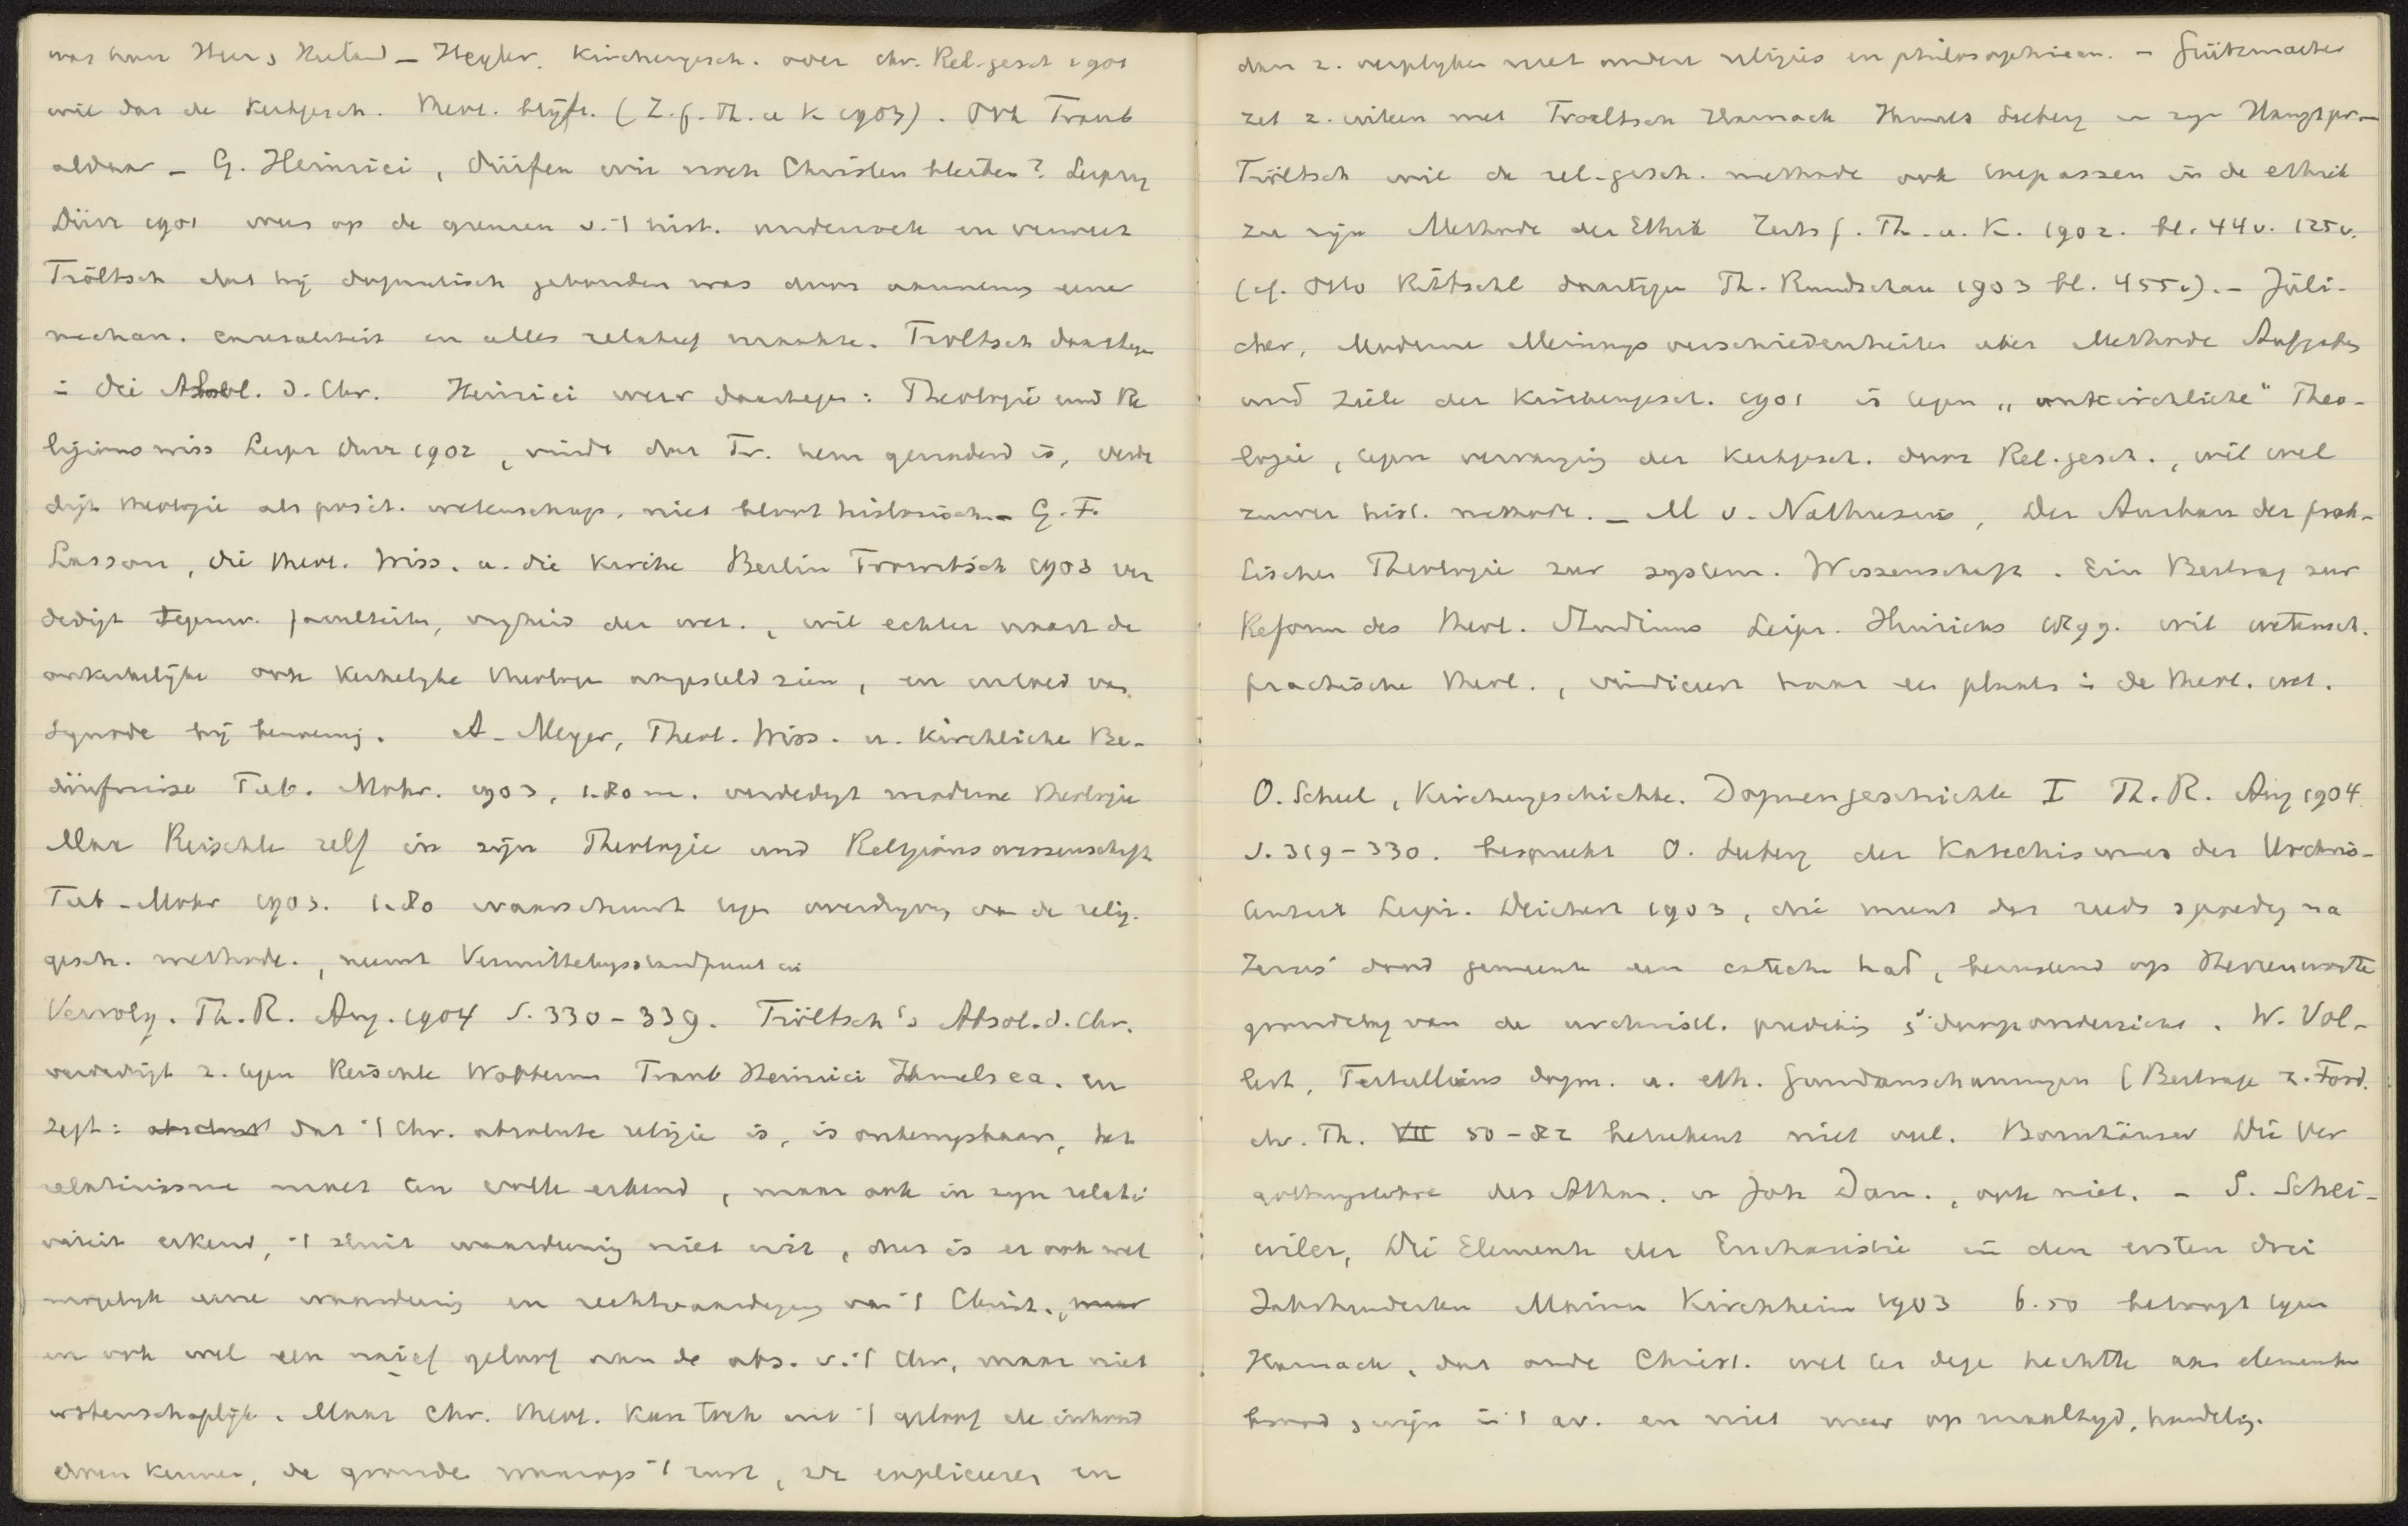 was haar Heer, Heiland – Hegler. Kirchengesch. oder chr. Rel.gesch 1901
wil dat de Kerkgesch. theol. blijft. (Z. f. Th. u K 1903). Ook Traub
aldaar – G. Heinrici, dürfen wir noch Christen bleiben? Leipzig
Dürr 1901 wees op de grenzen v. 't hist. onderzoek en verweet
Tröltsch dat hij dogmatisch gebonden was door aanneming eener
mechan. causaliteit en alles relatief maakte. Troltsch daartegen
in Die Absol. d. Chr. Heinrici weer daartegen: Theologie und Re
ligionswiss Leipz Dürr 1902, vindt dat Tr. hem genaderd is, verde
digt theologie als posit. wetenschap, niet bloot historisch. – G. F.
Lasson, die theol. Wiss. u. die Kirche Berlin Trowitsch 1903 ver
dedigt tegenw. faculteiten, vrijheid der wet., wil echter naast de
onkerkelijke ook kerkelijke theologen aangesteld zien, en invloed van
synode bij benoeming. A. Meyer, Theol. Wiss. u. kirchliche Be-
dürfnisse Tub. Mohr. 1903, 1.80 m. verdedigt moderne theologie
Max Reischle zelf in zijn Theologie und Religionswissenschaft
Tub – Mohr 1903. 1.80 waarschuwt tegen overdrijving van de relig.
gesch. methode., neemt Vermittelungsstandpunt in
Vervolg. Th. R. Aug. 1904 S. 330 – 339. Tröltsch's Absol. d. Chr.
verdedigt z. tegen Reischle Wobbermin Traub Heinrici Ihmels ea. en
zegt: dat 't Chr. absolute religie is, is onbewijsbaar, het
relativisme moet ten volle erkend, maar ook in zijn relati
viteit erkend, 't sluit waardeering niet uit, dus is er ook wel
mogelijk eene waardeering en rechtvaardiging van 't Christ., maar
en ook wel een naief geloof aan de abs. v. 't Chr, maar niet
wetenschaplijk. Maar Chr. theol. kan toch uit 't geloof de inhoud
doen kennen, de gronden waarop 't rust, ze expliceeren en
dan z. vergelijken met andere religies en philosophieen. – Grützmacher
zet z. uiteen met Troeltsch Harnack Ihmels Seeberg in zijn Hauptpr. –
Tröltsch wil de rel.-gesch. methode ook toepassen in de ethiek
zie zijn Methode der Ethik Zeits f. Th. u. K. 1902. bl. 44v. 125v.
(cf. Otto Ritschl daartegen Th. Rundschau 1903 bl. 455v). – Jüli-
cher, Moderne Meinungsverschiedenheiten über Methode Aufgaben
und Ziele der Kirchengesch. 1901 is tegen „unkirchliche" Theo-
logie, tegen vervanging der Kerkgesch. door Rel.gesch., wil wel
zuiver hist. methode. – M v. Nathusius, Der Ausbau der prak-
tischen Theologie zur system. Wissenschaft. Ein Beitrag zur
Reform des theol. Studiums Leipz. Hinrichs 1899. wil wetensch.
practische theol., vindiceert haar een plaats in de theol. wet.
O. Scheel, Kirchengeschichte. Dogmengeschichte I Th. R. Aug 1904
S. 319 – 330. bespreekt O. Seeberg der Katechismus der Urchris-
tenheit Leipz. Deichert 1903, die meent dat reeds spoedig na
Jezus' dood gemeente een catech. had, berustend op Herrenworte
grondslag van de urchristl. prediking & dooponderricht. W. Vol-
lert, Tertullians dogm. u. eth. Grundanschauungen (Beitrage z. Förd.
chr. Th. VII 50 – 82 beteekent niet veel. Bornhäuser Die Ver
gottungslehre des Athan. u Joh Dam., ook niet. – S. Schei-
wiler, Die Elemente der Eucharistie in den ersten drei
Jahrhunderten Mainz Kirchheim 1903 6.50 betoogt tegen
Harnack, dat oude Christ. wel ter dege hechtte aan elementen
brood & wijn in 't av. en niet maar op maaltijd, handeling.